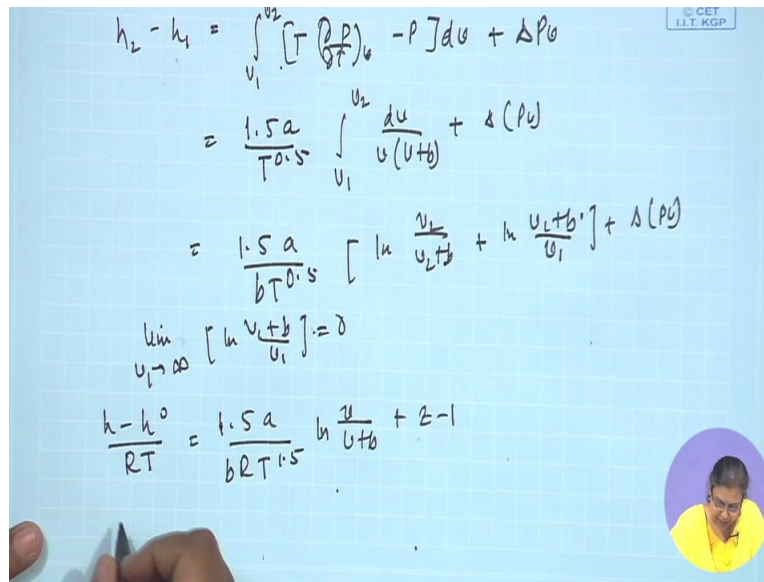 © CET
I.I.T. KGP
h₂ - h₁ = ∫_{v₁}^{v₂} [T (∂P/∂T)_v - P] dv + ΔPv
= 1.5a/T^0.5 ∫_{v₁}^{v₂} dv/v(v+b) + Δ(Pv)
= 1.5a/bT^0.5 [ln v₂/v₂+b + ln v₁+b/v₁] + Δ(Pv)
lim_{v₁→∞} [ln v₁+b/v₁] = 0
h-h⁰/RT = 1.5a/bRT^1.5 ln v/v+b + z-1